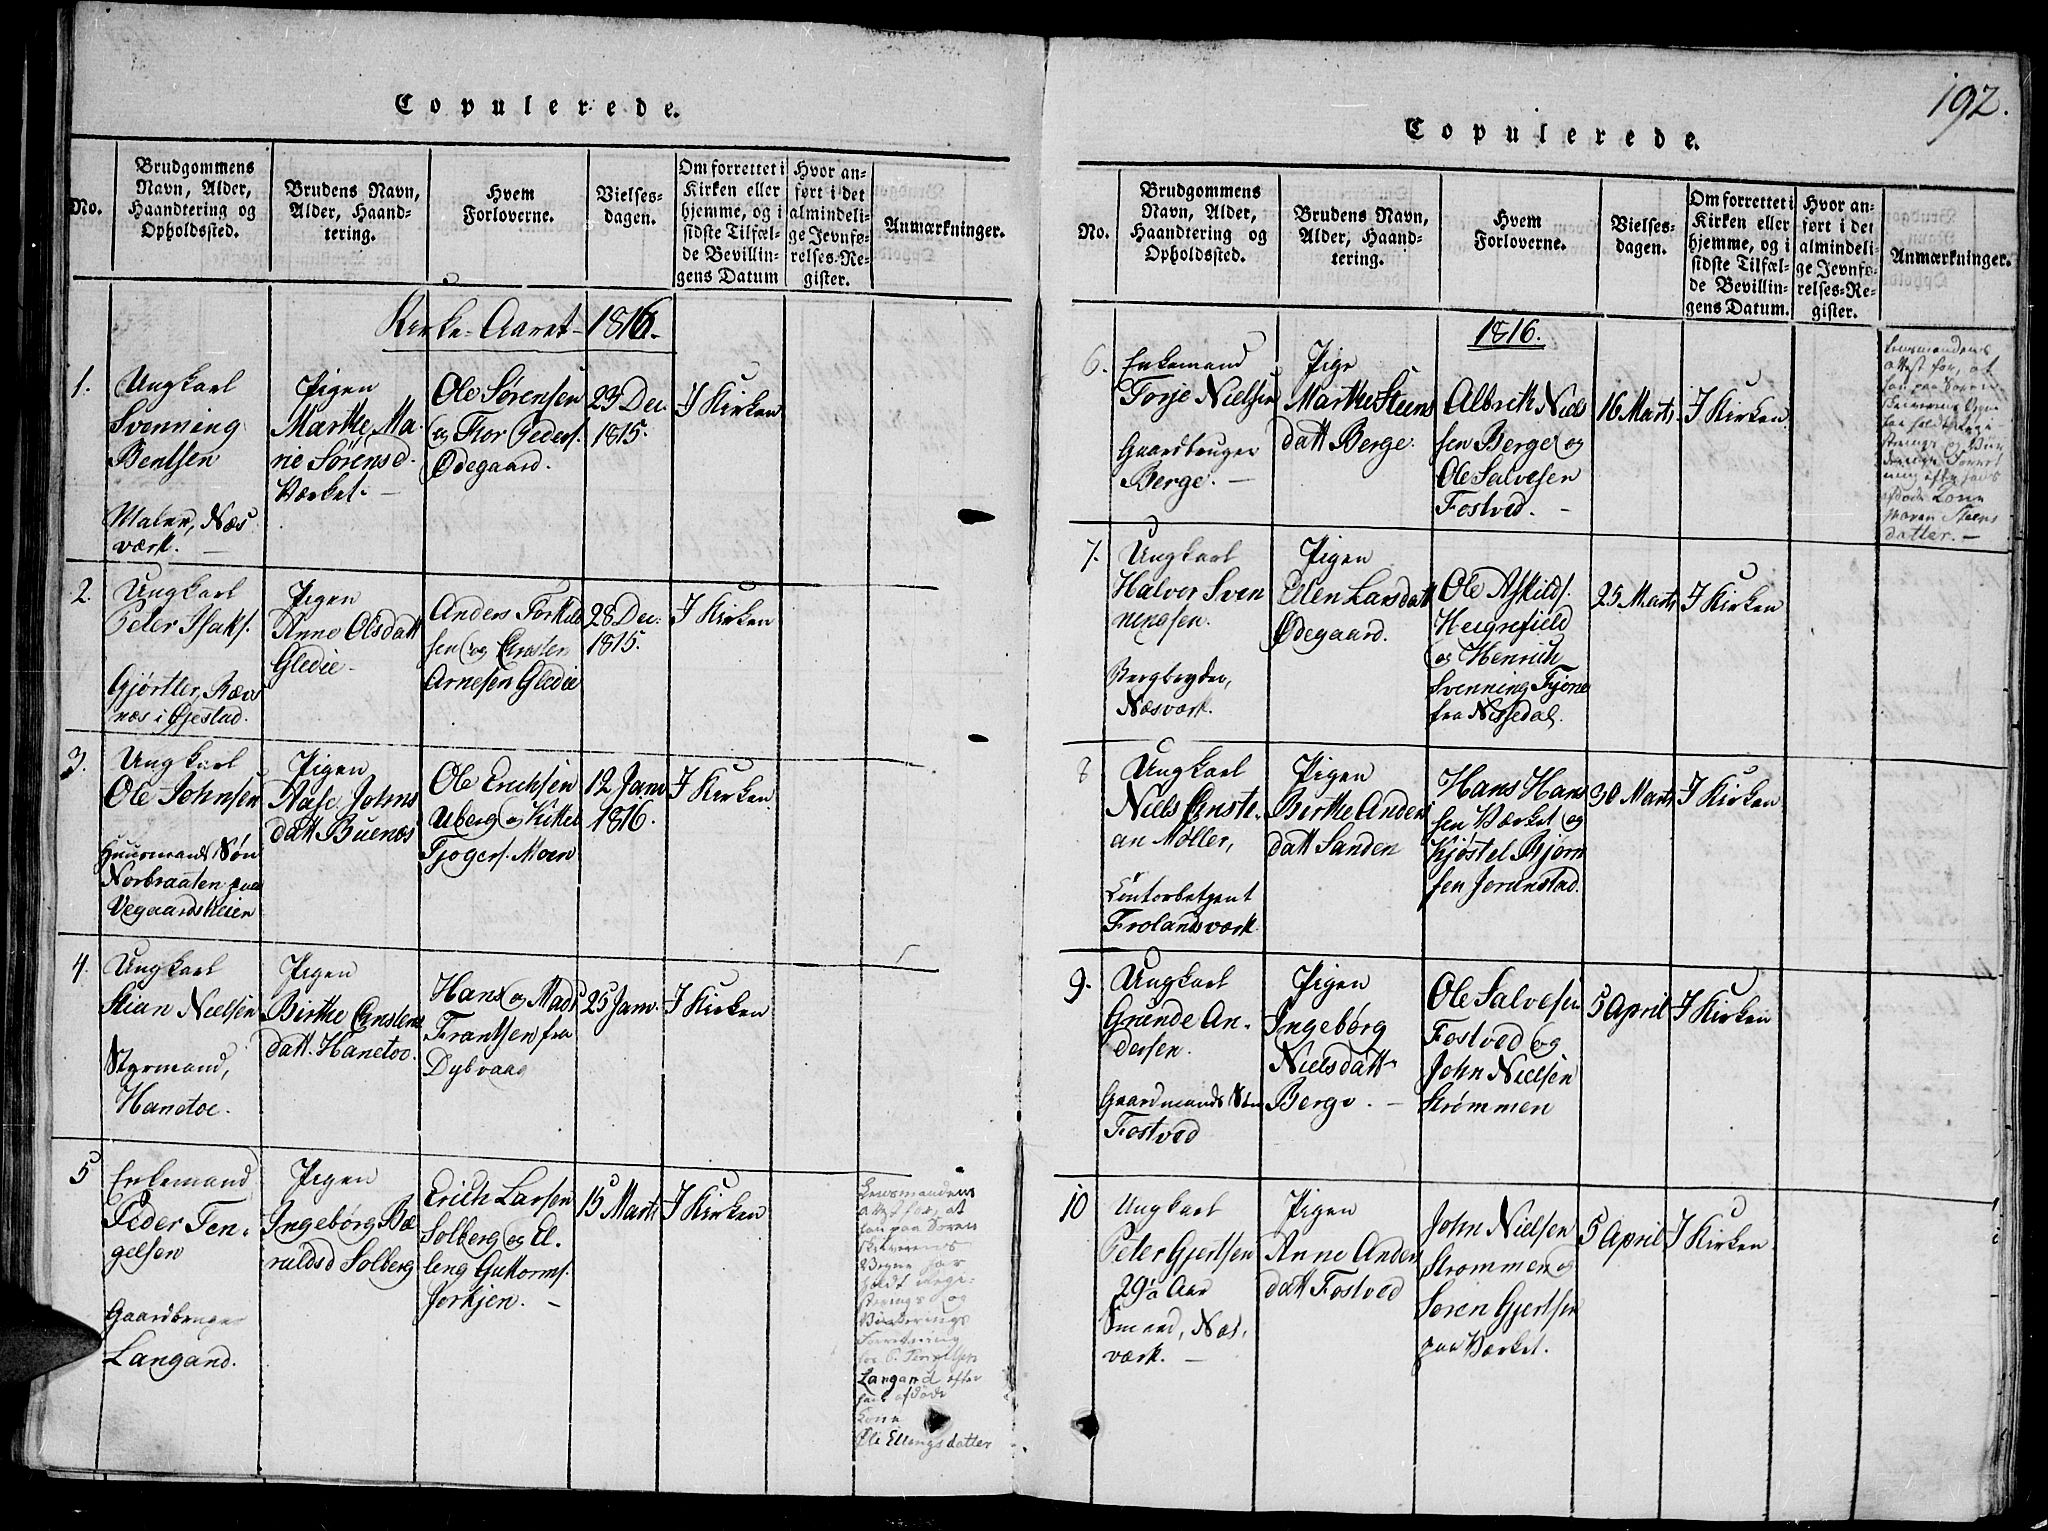 Copulerede.
No.
Brudgommens
Navn, Alder,
Haandtering og
Opholdssted.
Brudens Navn,
Alder, Haand-
tering.
Hvem
Forloverne.
Vielses-
dagen.
Om forrettet i
Kirken eller
hjemme, og i
sidste Tilfæl-
de Bevillin-
gens Datum
Hvor an-
ført i det
almindeli-
ge Jevnfø-
relses-Re-
gister.
Anmærkninger.
Kirke-Aaret 1816.
1.
Ungkarl
Svenning
Bentsen
Maler, Næs
værk.
Pigen
Marthe Ma-
rie Sørensd.
Værket.
Ole Sørensen
og Thor Peders.
Ødegaard.
23 Dec.
1815.
I Kirken
2.
Ungkarl
Peter Isaks.
Gjørtler, Røvs
næs i Øjestad.
Pigen
Anne Olsdatt
Gledie.
Anders Torkild
sen og Ensten
Arnesen Gledie
28 Dec.
1815.
I Kirken
3.
Ungkarl
Ole Johnsen
Huusmands Søn
Norbraaten paa
Vegaardsheien
Pigen
Aase Johns
datt Buenæs
Ole Erichsen
Uberg og Kittel
Tjogers. Moen
12 Janr
1816.
I Kirken
4.
Ungkarl
Stian Nielsen
Styrmand,
Hanetoe.
Pigen
Birthe Enstens
datt. Hanetoe.
Hans og Mads
Frantsen fra
Dybvaag
25 Janr.
I Kirken
5
Enkemand
Peder Ten-
gelsen
Gaardbruger
Langand.
Pigen
Ingebørg Bæ
ruldsd Solberg
Erich Larsen
Solberg og El-
leng Guttorms.
Jorkjen.
15 Marts
I Kirken
Lensmandens
Attest for, at
han paa Soren
skriverens
Vegne har
holdt Regi-
sterings og
Vurderings
Forretning
hos P. Tengelsen
Langand efter
hans afdøde
Kone
Ellingsdatter
192.
Copulerede.
No.
Brudgommens
Navn, Alder,
Haandtering og
Opholdssted.
Brudens Navn,
Alder, Haand-
tering.
Hvem
Forloverne.
Vielses-
dagen.
Om forrettet i
Kirken eller
hjemme, og i
sidste Tilfæl-
de Bevillin-
gens Datum.
Hvor an-
ført i det
almindeli-
ge Jevnfø-
relses-Re-
gister.
Anmærkninger.
1816.
6.
Enkemand
Torje Nielsen
Gaardbruger
Berge.
Pige
Marthe Steens
datt Berge.
Albrik Niels
sen Berge og
Ole Salvesen
Fostved.
16 Marts
I Kirken
Lensmandens
Attest for, at
han paa Soren
skriverens Vegne
har holdt Regi-
strings og Vur
derings Forret
ning efter hans
afdøde Kone
Maren Steens
datter.
7.
Ungkarl
Halvor Sven
nengsen.
Bergbryder,
Næsværk.
Pigen
Elen Larsdatt
Ødegaard.
Ole Askilds.
Heigrefield
og Henrich
Svenning Tjøne
fra Nissedal.
25 Marts
I Kirken
8
Ungkarl
Niels Christi-
an Møller,
Contorbetjent
Frolandsværk
Pigen
Birthe Anders
datt Sanden
Hans Hans
sen Værket og
Kjøstel Bjørn
sen Jorunstad.
30 Marts
I Kirken
9.
Ungkarl
Grunde An-
dersen.
Gaardmands Søn
Fostved
Pigen
Ingebørg
Nielsdatt
Berge.
Ole Salvesen
Fostved og
John Nielsen
Strømmen
5 April
I Kirken
10
Ungkarl
Peter Gjertsen
29 a Aar
Smed, Næs-
værk.
Pigen
Anne Anders
datt Fostved
John Nielsen
Strømmen og
Søren Gjertsen
paa Værket.
5 April
I Kirken